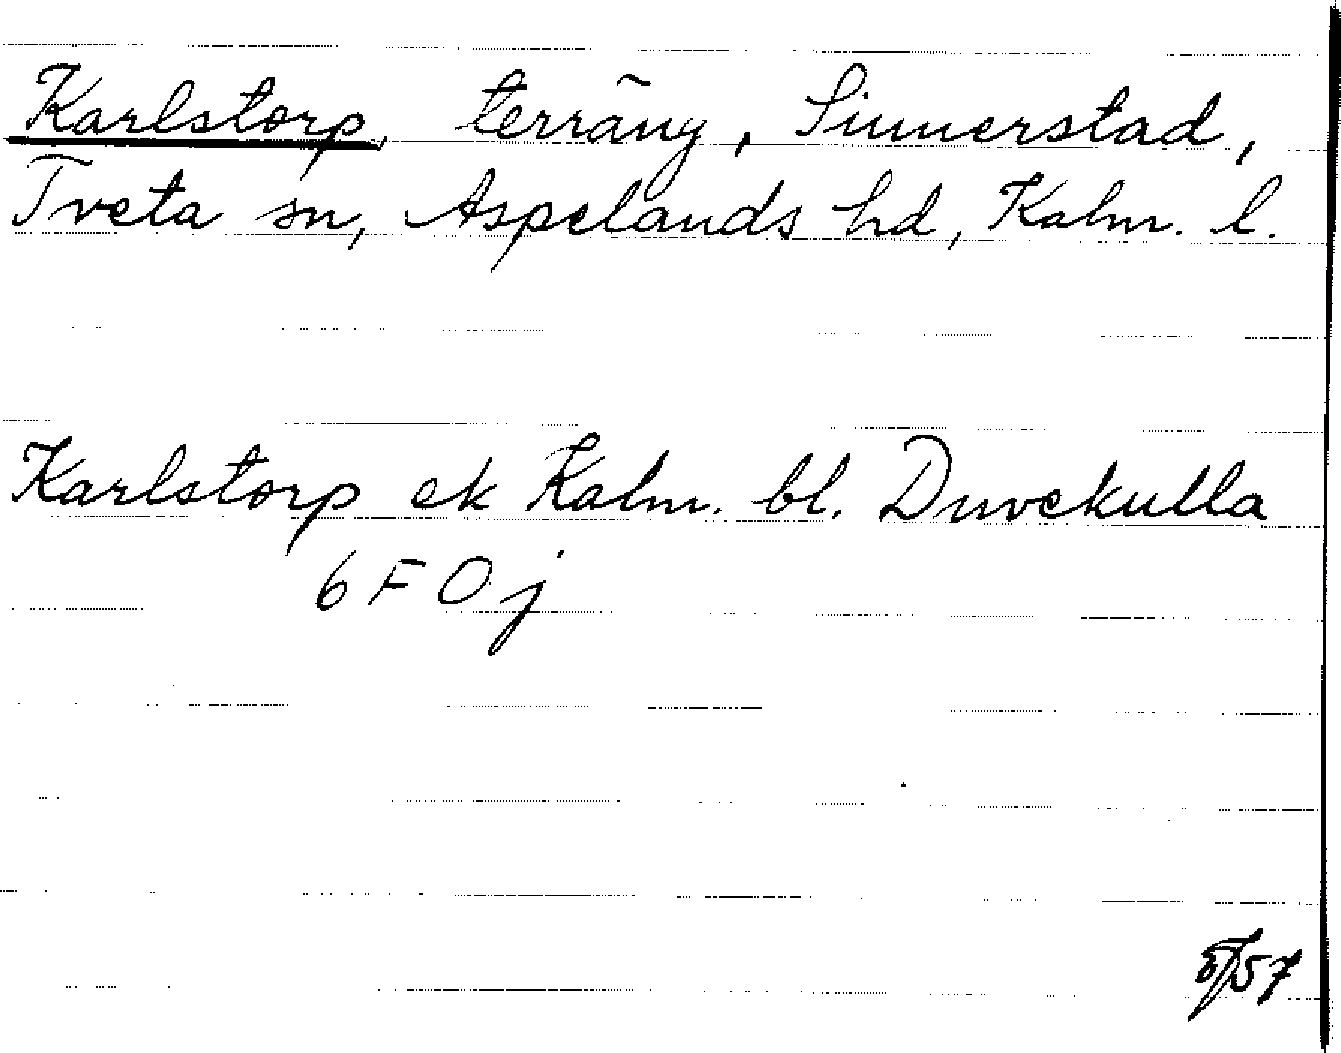 Karlstorp, terräng, Simmerstad,
Tveta sn, Aspelands hd, Kalm. l.
Karlstorp ek Kalm. bl. Duvekulla
6 F 0 j
57